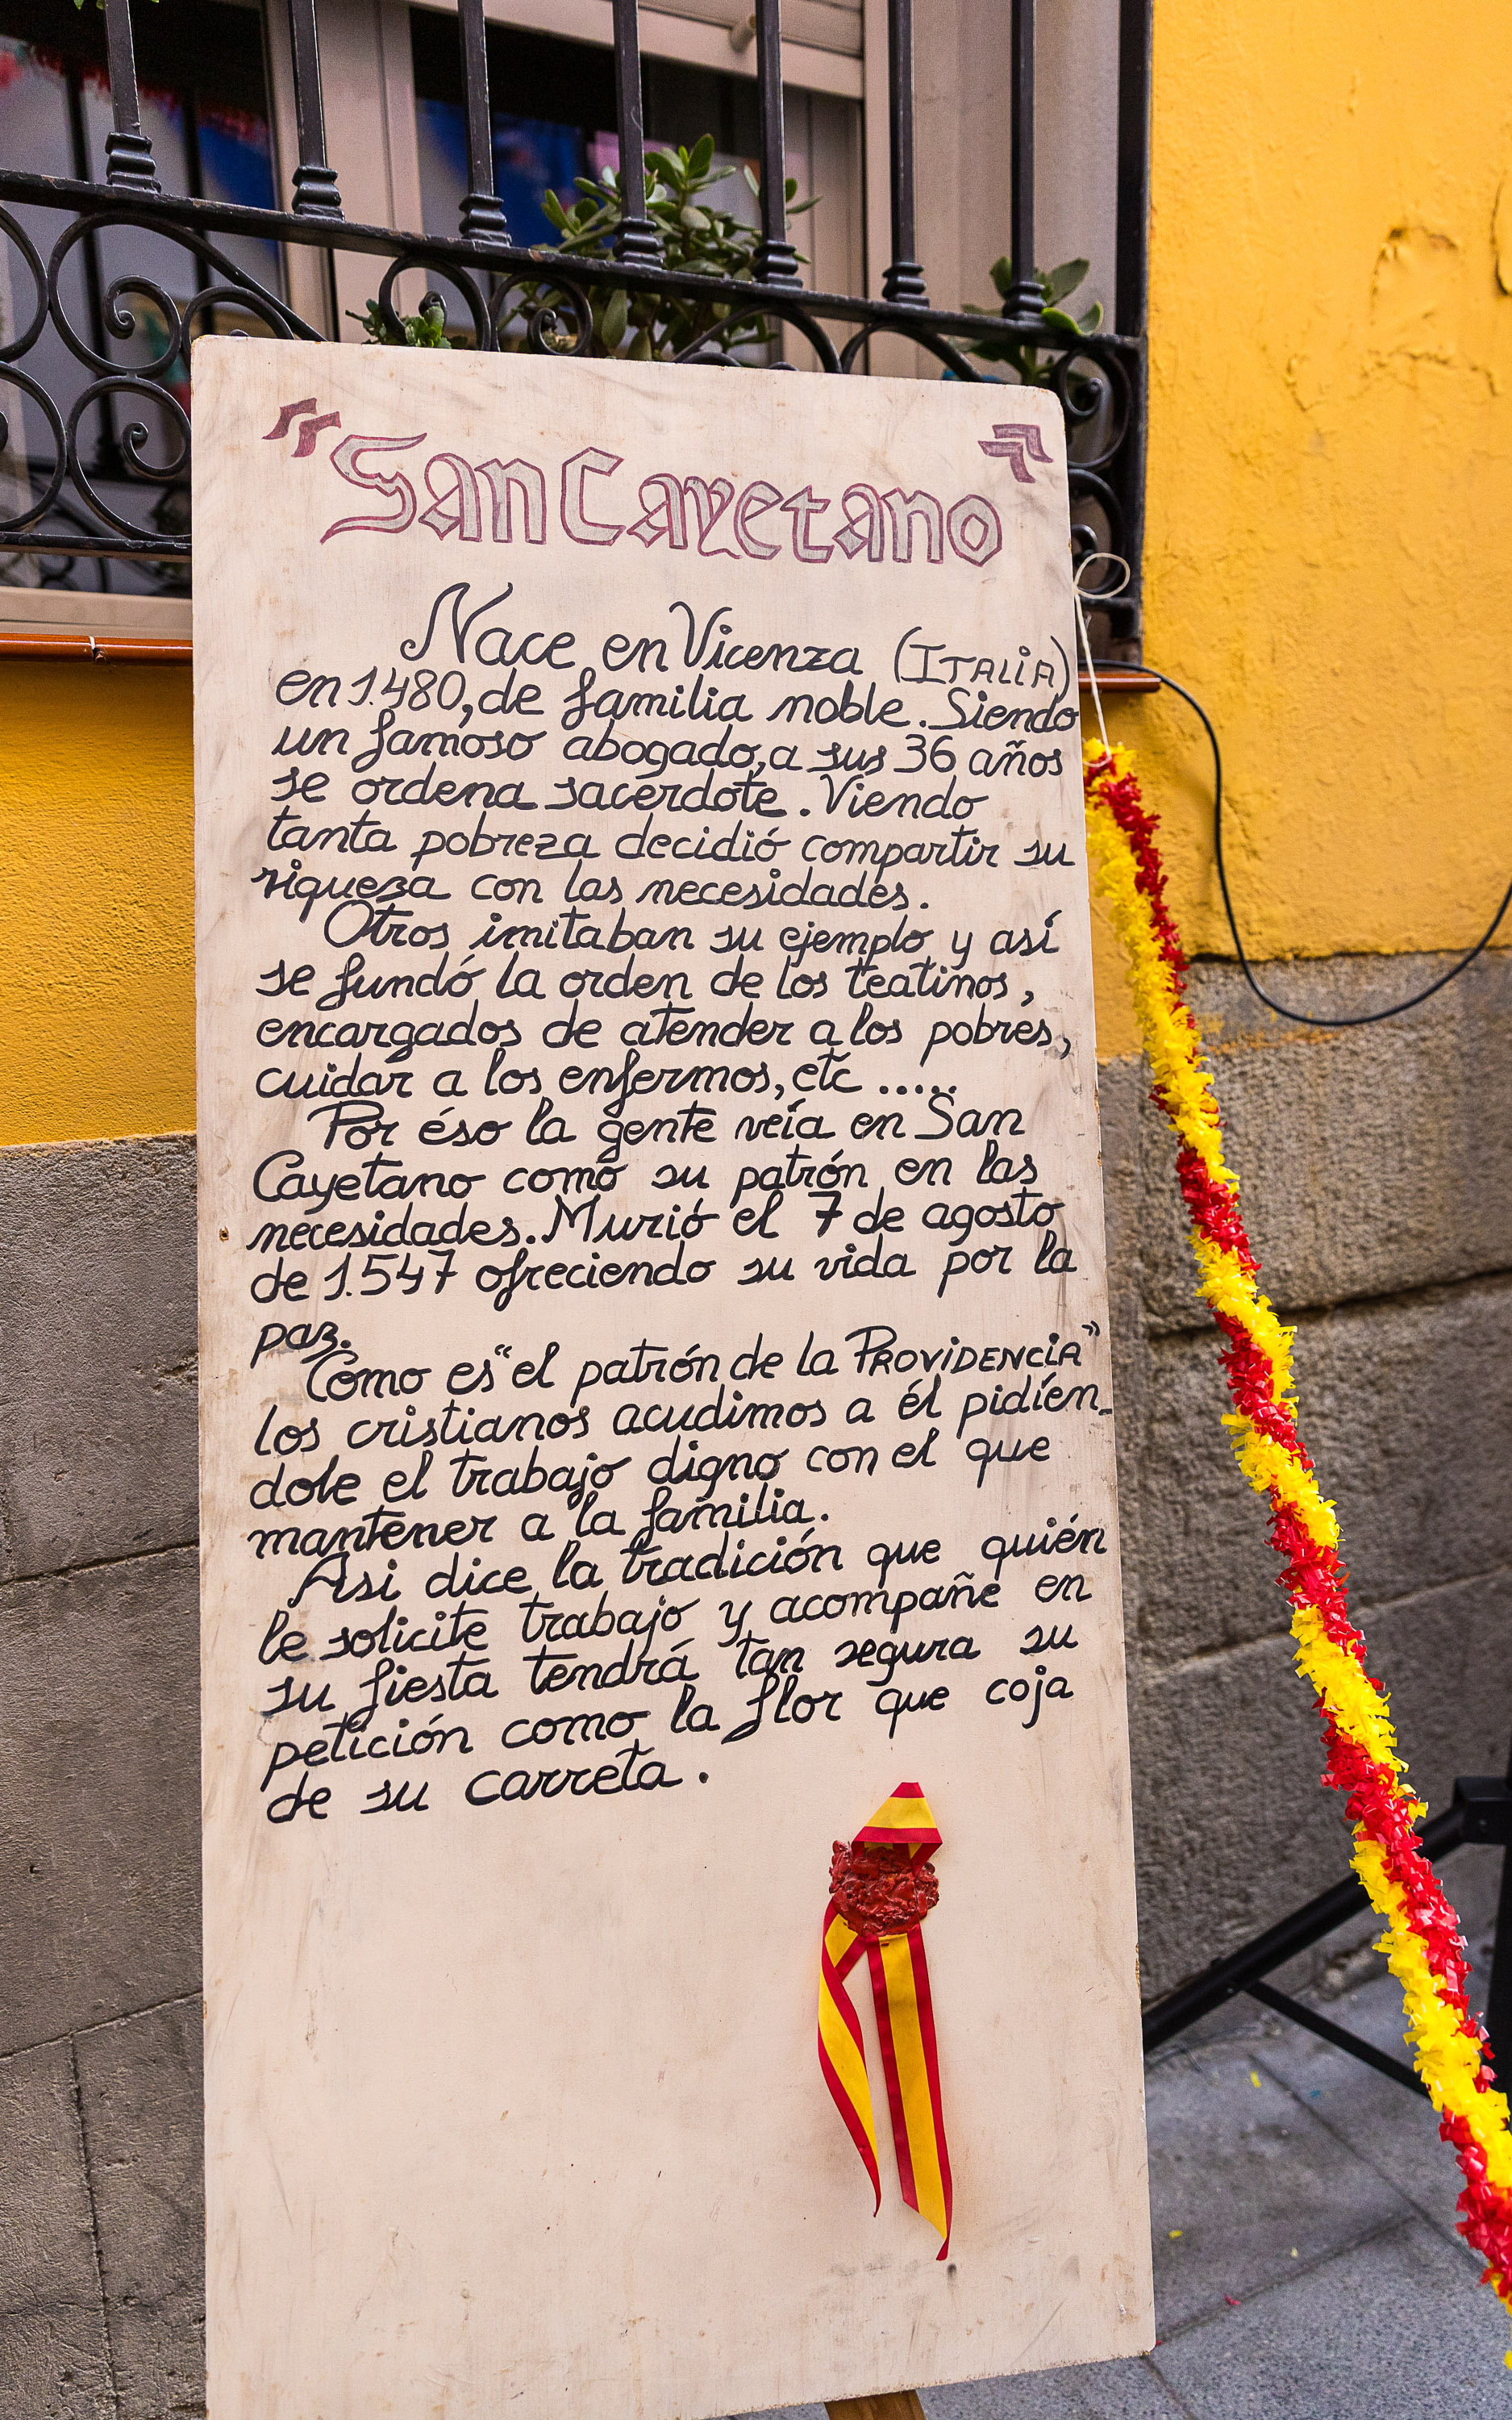 "San Cayetano"
Nace en Vicenza (ITALIA)
en 1.480, de familia noble. Siendo
un famoso abogado, a sus 36 años
se ordena sacerdote. Viendo
tanta pobreza decidió compartir su
riqueza con las necesidades.
Otros imitaban su ejemplo y así
se fundó la orden de los teatinos,
encargados de atender a los pobres,
cuidar a los enfermos, etc .....
Por éso la gente veía en San
Cayetano como su patrón en las
necesidades. Murió el 7 de agosto
de 1.547 ofreciendo su vida por la
paz.
Como es "el patrón de la PROVIDENCIA"
los cristianos acudimos a él pidién-
dole el trabajo digno con el que
mantener a la familia.
Asi dice la tradición que quién
le solicite trabajo y acompañe en
su fiesta tendrá tan segura su
petición como la flor que coja
de su carreta.